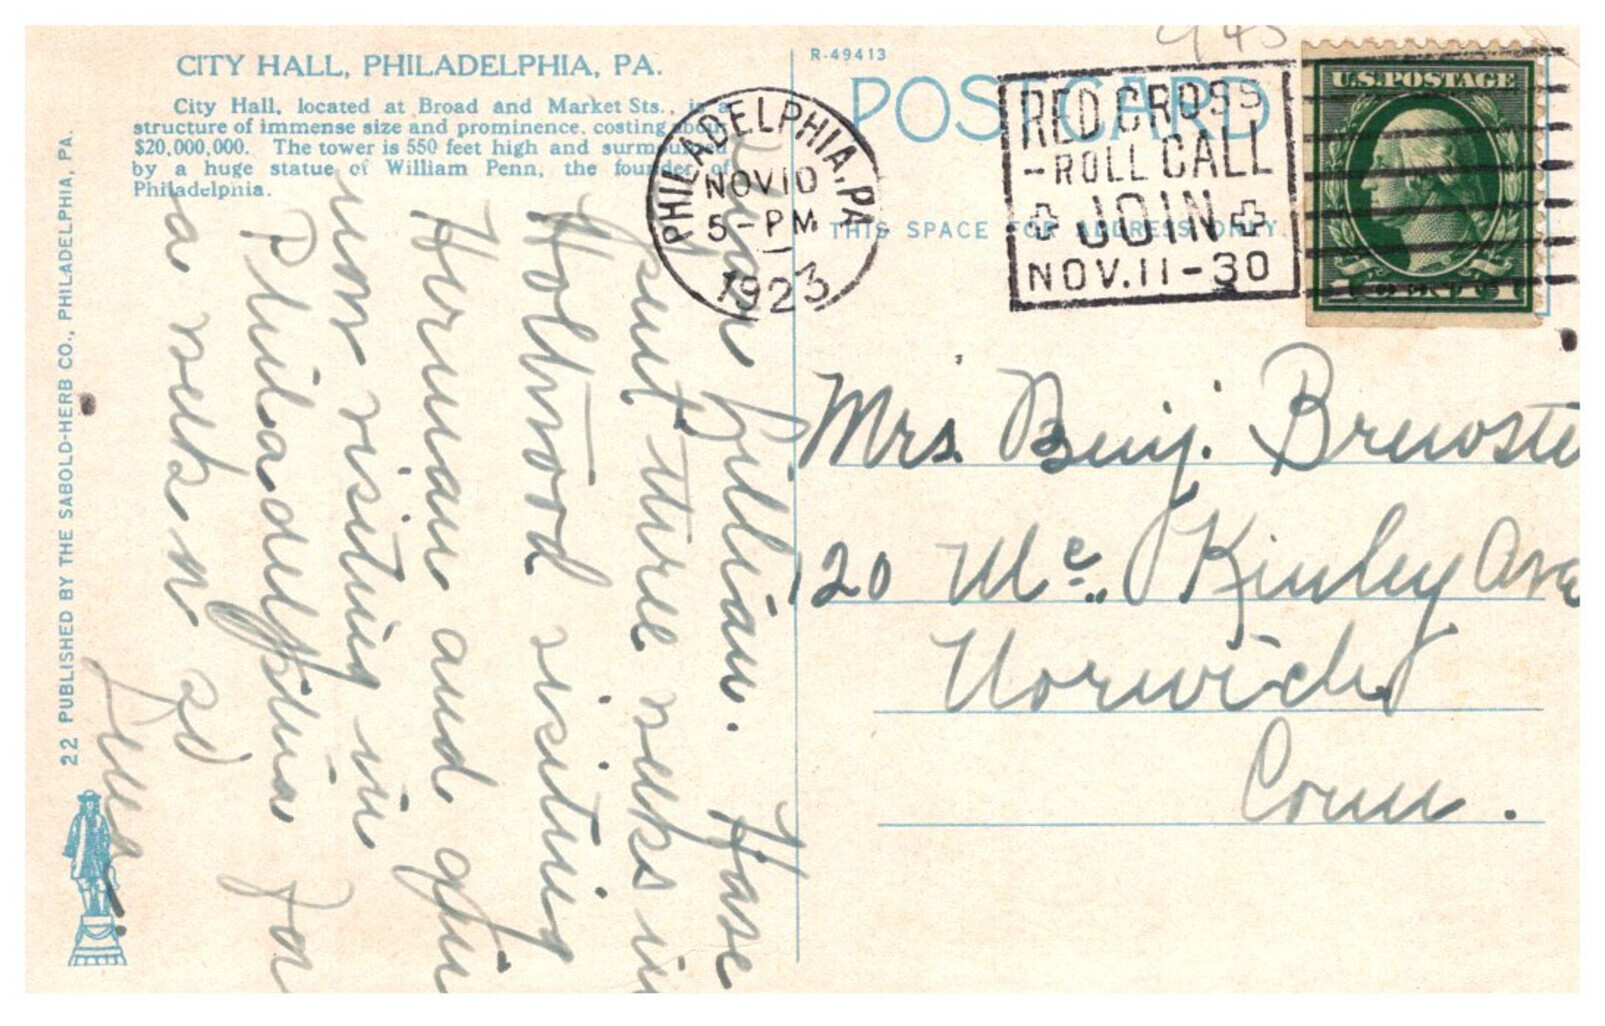 CITY HALL, PHILADELPHIA, PA.
City Hall, located at Broad and Market Sts., is a
structure of immense size and prominence, costing about
$20,000,000. The tower is 550 feet high and surmounted
by a huge statue of William Penn, the founder of
Philadelphia.
22 PUBLISHED BY THE SABOLD-HERB CO., PHILADELPHIA, PA.
R-49413
POST CARD
THIS SPACE FOR ADDRESS ONLY.
PHILADELPHIA, PA
NOV 10
5-PM
1923
RED CROSS
-ROLL CALL
JOIN
NOV. 11-30
U.S. POSTAGE
Dear Lillian. Have
spent three weeks in
Holtwood visiting
Herman and
now visiting in
Philadelphia for
a week
Mrs. Benj. Brewste
120 Mc. Kinley Ave
Norwich
Conn.